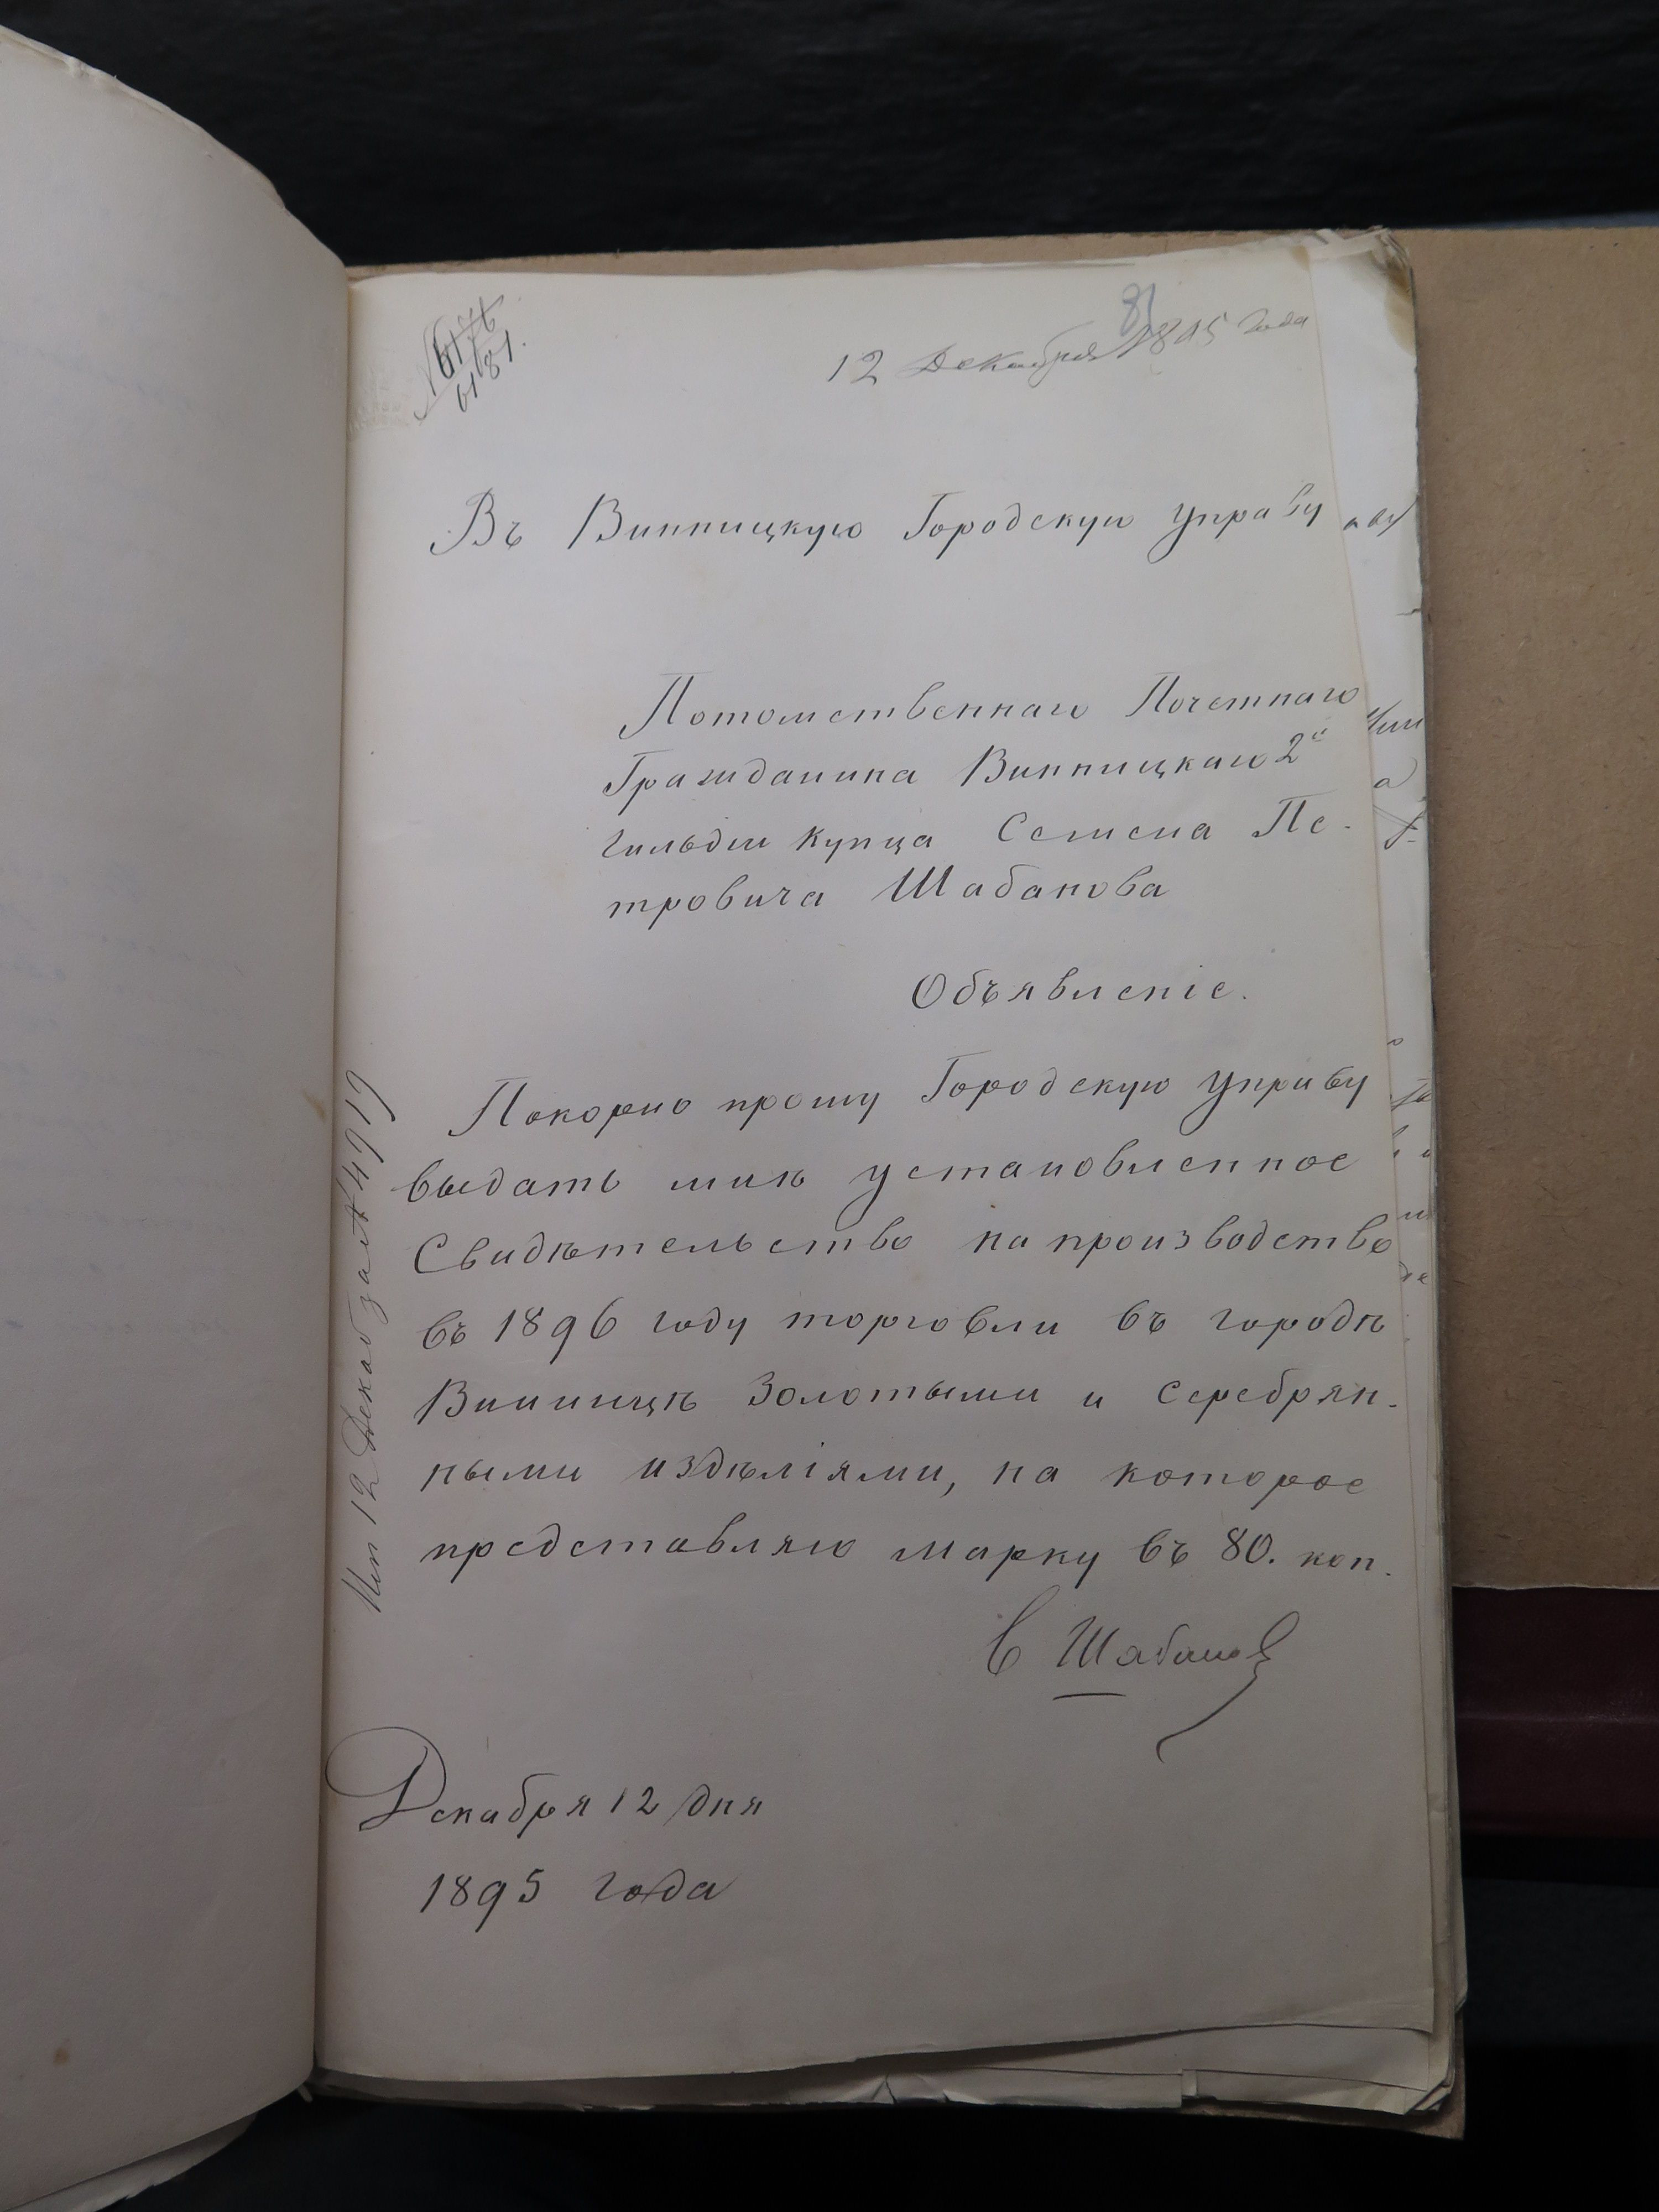 6181.
81
12 Декабря 1895 года
Въ Винницкую Городскую Управу
Потомственнаго Почетнаго
Гражданина Винницкаго 2й
гильдии купца Семена Пе-
тровича Шабанова
Объявленіе.
Покорно прошу Городскую Управу
выдать мнѣ установленное
Свидѣтельство на производство
въ 1896 году торговли въ городѣ
Винницѣ Золотыми и Серебрян-
ными издѣліями, на которое
представляю марку въ 80. коп.
С Шабанов
Декабря 12 дня
1895 года
Исп 12 Декаб за № 4919